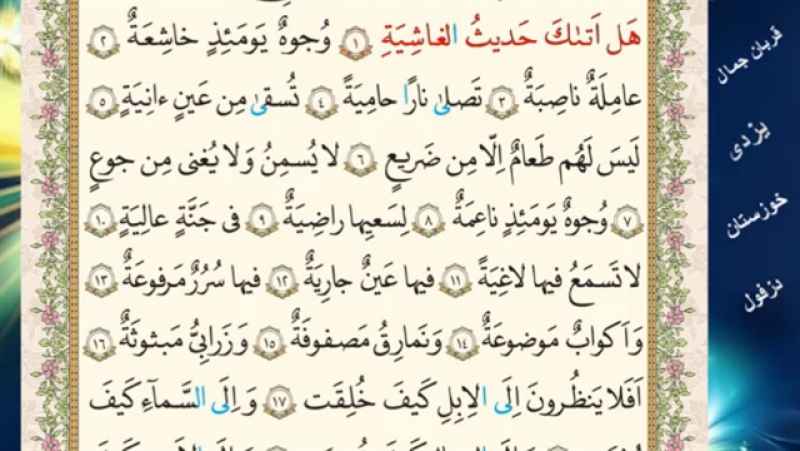 هَل اَتىٰكَ حَديثُ الغاشِيَةِ ﴿١﴾ وُجوهٌ يَومَئِذٍ خاشِعَةٌ ﴿٢﴾
عامِلَةٌ ناصِبَةٌ ﴿٣﴾ تَصلىٰ نارًا حامِيَةً ﴿٤﴾ تُسقىٰ مِن عَينٍ ءانِيَةٍ ﴿٥﴾
لَيسَ لَهُم طَعامٌ اِلّا مِن ضَريعٍ ﴿٦﴾ لا يُسمِنُ وَلا يُغنى مِن جوعٍ
﴿٧﴾ وُجوهٌ يَومَئِذٍ ناعِمَةٌ ﴿٨﴾ لِسَعيِها راضِيَةٌ ﴿٩﴾ فى جَنَّةٍ عالِيَةٍ ﴿١٠﴾
لا تَسمَعُ فيها لاغِيَةً ﴿١١﴾ فيها عَينٌ جارِيَةٌ ﴿١٢﴾ فيها سُرُرٌ مَرفوعَةٌ ﴿١٣﴾
وَاَكوابٌ مَوضوعَةٌ ﴿١٤﴾ وَنَمارِقُ مَصفوفَةٌ ﴿١٥﴾ وَزَرابِىُّ مَبثوثَةٌ ﴿١٦﴾
اَفَلا يَنظُرونَ اِلَى الاِبِلِ كَيفَ خُلِقَت ﴿١٧﴾ وَاِلَى السَّمآءِ كَيفَ
قربان جمال
یزدی
خوزستان
دزفول